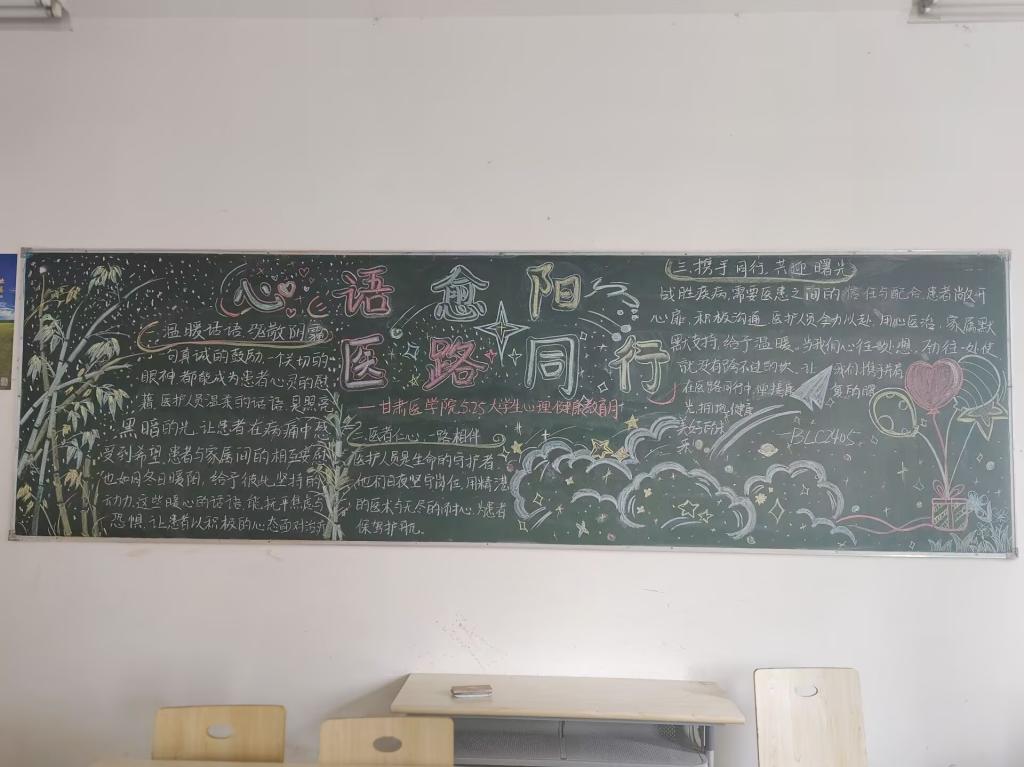 心语愈阳
医路同行
——甘肃医学院5.25大学生心理健康教育月
一温暖话语 驱散阴霾
一句真诚的鼓励,一个关切的
眼神,都能成为患者心灵的慰
藉。医护人员温柔的话语,是照亮
黑暗的光,让患者在病痛中感
受到希望。患者与家属间的相互安慰
也如同冬日暖阳,给予彼此坚持的
动力。这些暖心的话语,能抚平焦虑与
恐惧,让患者以积极的心态面对治疗
二医者仁心 一路相伴
医护人员是生命的守护者,
他们日夜坚守岗位,用精湛
的医术与无尽的耐心,为患者
保驾护航。
三.携手同行 共迎曙光
战胜疾病,需要医患之间的信任与配合。患者敞开
心扉,积极沟通,医护人员全力以赴,用心医治,家属默
默支持,给予温暖。当我们心往一处想,劲往一处使
就没有跨不过的坎。让我们携手
在医路同行中,迎接
光,拥抱健康
美好的未
来。
BLC2405